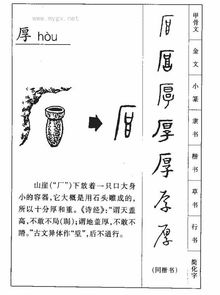 www.mygx.net
厚 hòu
山崖(“厂”)下放着一只口大身
小的容器,它大概是用石头雕成的,
所以十分厚和重。《诗经》:“谓天盖
高,不敢不局(跼);谓地盖厚,不敢不
蹐。”古文异体作“垕”,后不通行。
厚
厚
厚
厚
厚
厚
厚
(同楷书)
甲骨文
金文
小篆
隶书
楷书
草书
行书
简化字